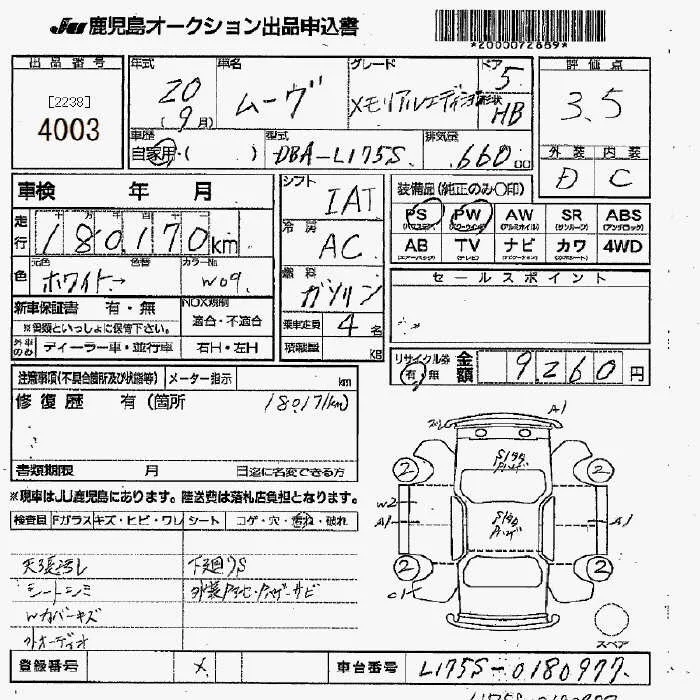 JU 鹿児島オークション出品申込書
*2000072889*
出品番号
[2238]
4003
年式 20 (9月)
車名 ムーヴ
グレード メモリアルエディション
ドア 5
形状 HB
評価点 3.5
車歴 自家用・( )
型式 DBA-L175S
排気量 660 cc
外装 D
内装 C
車検 年 月
走行 180,170 km
十 万 千 百 十
色 元色 ホワイト→ 色替 カラーNo. W09
新車保証書 有・無
※書類といっしょに保管下さい。
NOX規制 適合・不適合
外車のみ ディーラー車・並行車 右H・左H
シフト IAT
冷房 AC
燃料 ガソリン
乗車定員 4 名
積載量 KG
装備品(純正のみ○印)
PS PW AW SR ABS
(パワステ) (パワーウインド) (アルミホイル) (サンルーフ) (アンチロック)
AB TV ナビ カワ 4WD
(エアーバック) (テレビ) (ナビゲーション) (カワシート)
セールスポイント
リサイクル券 有 無 金額 9,260 円
注意事項(不具合箇所及び状態等) メーター指示 km
修復歴 有(箇所 18017km)
書類期限 月 日迄に名変できる方
※現車はJU鹿児島にあります。陸送費は落札店負担となります。
検査員 Fガラスキズ・ヒビ・ワレ シート コゲ・穴・汚れ・破れ
シートシミ
Wカバーキズ
外オーディオ
下廻りS
A1
2 2
W2
A1 A1
2 2
C1
スペア
登録番号 X
車台番号 L175S-0180977
L175S-0180977